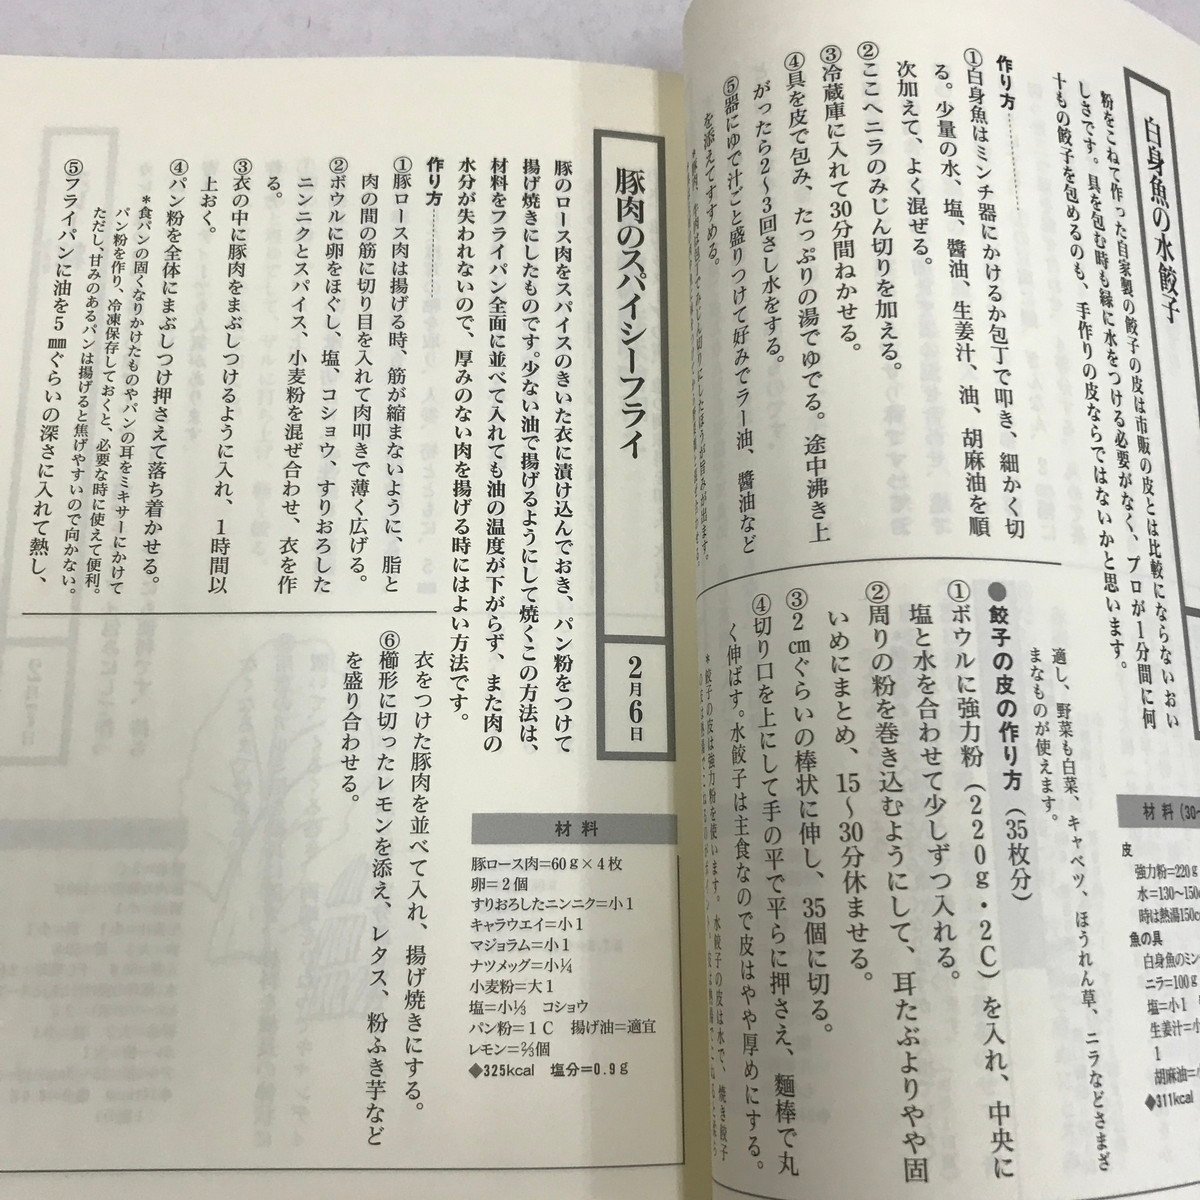 白身魚の水餃子
粉をこねて作った自家製の餃子の皮は市販の皮とは比較にならないおい
しさです。具を包む時も縁に水をつける必要がなく、プロが1分間に何
十もの餃子を包めるのも、手作りの皮ならではないかと思います。
作り方
①白身魚はミンチ器にかけるか包丁で叩き、細かく切
る。少量の水、塩、醬油、生姜汁、油、胡麻油を順
次加えて、よく混ぜる。
②ここへニラのみじん切りを加える。
③冷蔵庫に入れて30分間ねかせる。
④具を皮で包み、たっぷりの湯でゆでる。途中沸き上
がったら2〜3回さし水をする。
⑤器にゆで汁ごと盛りつけて好みでラー油、醬油など
を添えてすすめる。
適し、野菜も白菜、キャベツ、ほうれん草、ニラなどさまざ
まなものが使えます。
●餃子の皮の作り方（35枚分）
①ボウルに強力粉（220g・2C）を入れ、中央に
塩と水を合わせて少しずつ入れる。
②周りの粉を巻き込むようにして、耳たぶよりやや固
いめにまとめ、15〜30分休ませる。
③2㎝ぐらいの棒状に伸し、35個に切る。
④切り口を上にして手の平で平らに押さえ、麵棒で丸
く伸ばす。水餃子は主食なので皮はやや厚めにする。
*餃子の皮は強力粉を使います。水餃子の皮は水で、焼き餃子
材料（30〜
皮
強力粉=220g
水=130〜150c
時は熱湯150c
魚の具
白身魚のミン
ニラ=100g
塩=小1
生姜汁=小
1
胡麻油=小
◆311kcal
豚肉のスパイシーフライ
2月6日
豚のロース肉をスパイスのきいた衣に漬け込んでおき、パン粉をつけて
揚げ焼きにしたものです。少ない油で揚げるようにして焼くこの方法は、
材料をフライパン全面に並べて入れても油の温度が下がらず、また肉の
水分が失われないので、厚みのない肉を揚げる時にはよい方法です。
作り方
①豚ロース肉は揚げる時、筋が縮まないように、脂と
肉の間の筋に切り目を入れて肉叩きで薄く広げる。
②ボウルに卵をほぐし、塩、コショウ、すりおろした
ニンニクとスパイス、小麦粉を混ぜ合わせ、衣を作
る。
③衣の中に豚肉をまぶしつけるように入れ、1時間以
上おく。
④パン粉を全体にまぶしつけ押さえて落ち着かせる。
*食パンの固くなりかけたものやパンの耳をミキサーにかけて
パン粉を作り、冷凍保存しておくと、必要な時に使えて便利。
ただし、甘みのあるパンは揚げると焦げやすいので向かない。
⑤フライパンに油を5㎜ぐらいの深さに入れて熱し、
衣をつけた豚肉を並べて入れ、揚げ焼きにする。
⑥櫛形に切ったレモンを添え、レタス、粉ふき芋など
を盛り合わせる。
材料
豚ロース肉=60g×4枚
卵=2個
すりおろしたニンニク=小1
キャラウエイ=小1
マジョラム=小1
ナツメッグ=小¼
小麦粉=大1
塩=小⅓ コショウ
パン粉=1C 揚げ油=適宜
レモン=⅔個
◆325kcal 塩分=0.9g